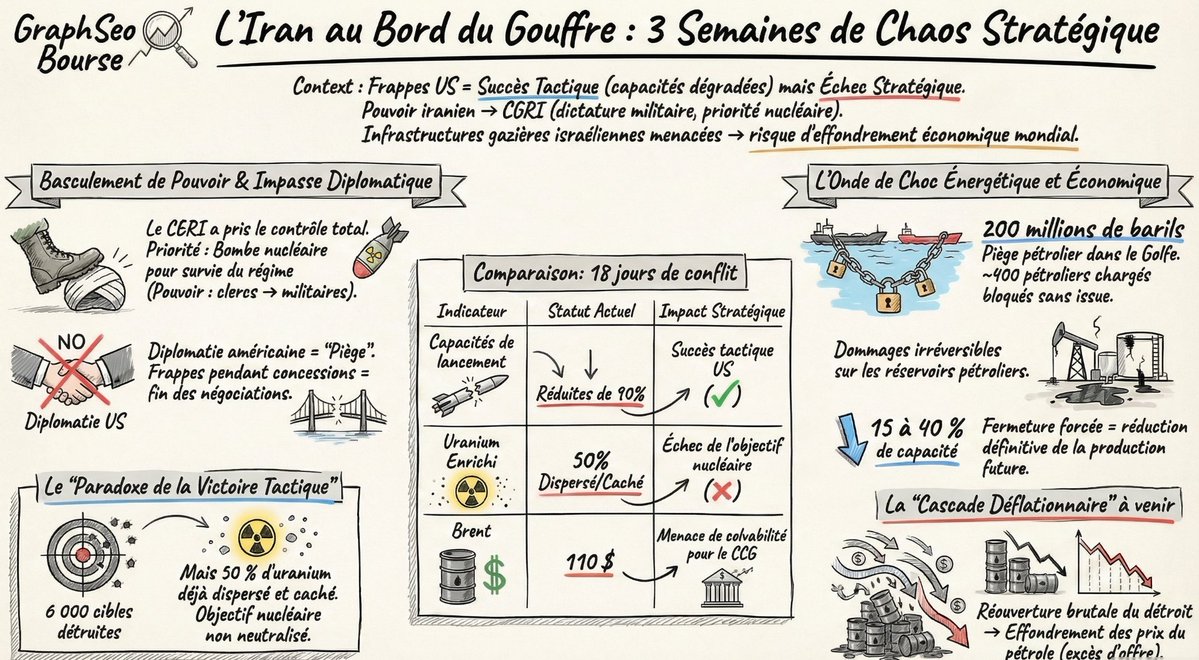 GraphSeo
Bourse
L'Iran au Bord du Gouffre : 3 Semaines de Chaos Stratégique
Context : Frappes US = Succès Tactique (capacités dégradées) mais Échec Stratégique.
Pouvoir iranien → CGRI (dictature militaire, priorité nucléaire).
Infrastructures gazières israéliennes menacées → risque d'effondrement économique mondial.
Basculement de Pouvoir & Impasse Diplomatique
Le CERI a pris le contrôle total.
Priorité : Bombe nucléaire
pour survie du régime
(Pouvoir : clercs → militaires).
NO
Diplomatie US
Diplomatie américaine = "Piège".
Frappes pendant concessions =
fin des négociations.
Le "Paradoxe de la Victoire Tactique"
6 000 cibles
détruites
Mais 50 % d'uranium
déjà dispersé et caché.
Objectif nucléaire
non neutralisé.
Comparaison: 18 jours de conflit
Indicateur
Statut Actuel
Impact Stratégique
Capacités de
lancement
Réduites de 90%
Succès tactique
US
(✓)
Uranium
Enrichi
50%
Dispersé/Caché
Échec de l'objectif
nucléaire
(✗)
Brent
$
110 $
Menace de colvabilité
pour le CCG
L'Onde de Choc Énergétique et Économique
200 millions de barils
Piège pétrolier dans le Golfe.
~400 pétroliers chargés
bloqués sans issue.
Dommages irréversibles
sur les réservoirs pétroliers.
15 à 40 %
de capacité
Fermeture forcée = réduction
définitive de la production
future.
La "Cascade Déflationnaire" à venir
Réouverture brutale du détroit
→ Effondrement des prix du
pétrole (excès d'offre).